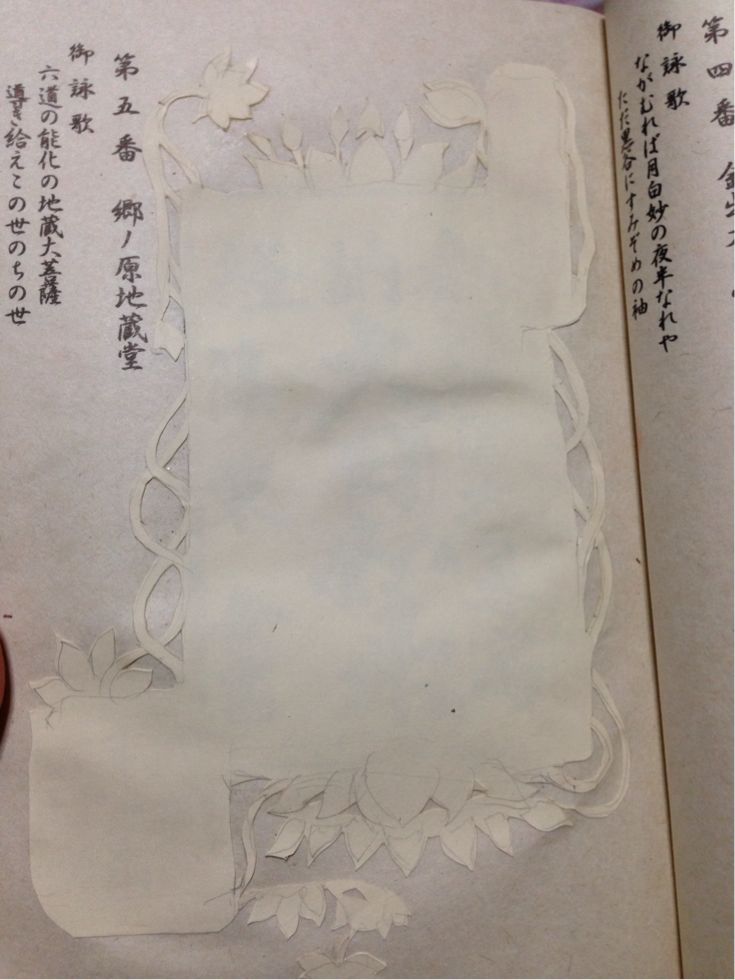 第四番
御詠歌
ながむれば月白妙の夜半なれや
ただ黒谷にすみぞめの袖
第五番 郷ノ原地蔵堂
御詠歌
六道の能化の地蔵大菩薩
導き給えこの世のちの世